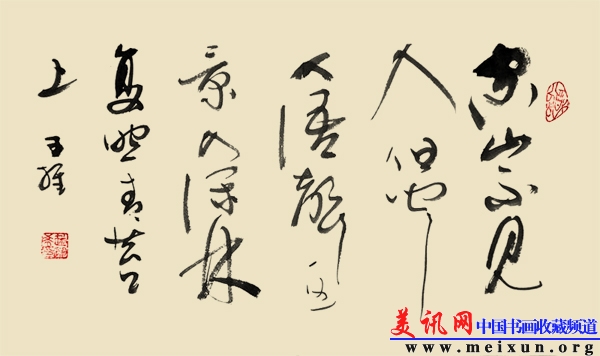 空山不見
人但聞
人語響返
景入深林
复照青苔
上 王維
美讯网 中国书画收藏频道
www.meixun.org